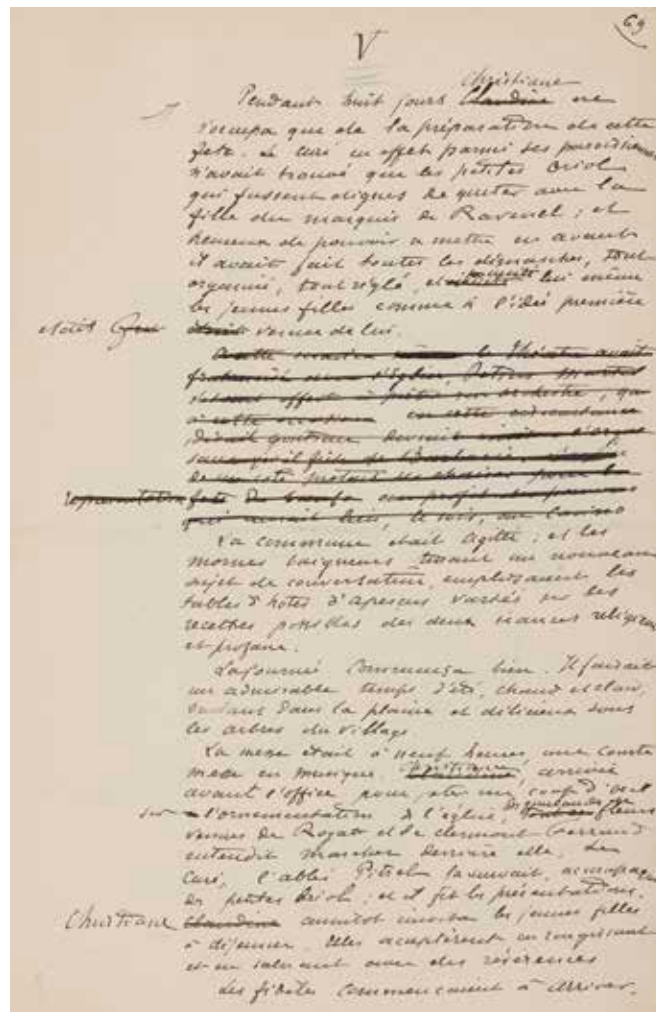 69
V
Christiane
Pendant huit jours Claudine ne
s'occupa que de la préparation de cette
fete. Le curé en effet parmi ses paroissiennes
n'avait trouvé que les petites Oriol
qui fussent dignes de queter avec la
fille du marquis de Ravenel ; et
heureux de pouvoir se mettre en avant
il avait fait toutes les démarches, tout
organisé, tout réglé, et lui même
les jeunes filles comme si l'idée première
etait venue de lui.
le théâtre avait
fraternisé avec l'église, Petrus Martel
offert
en cette circonstance
disait Gontran
representation
au profit des pauvres
qui aurait lieu, le soir, au Casino
La commune etait agitée ; et les
mornes baigneurs tenant un nouveau
sujet de conversation, emplissaient les
tables d'hotes d'aperçus variés sur les
recettes possibles des deux séances religieuse
et profane.
La journée commença bien. Il faisait
un admirable temps d'été, chaud et clair,
dans la plaine et délicieux sous
les arbres du village
La messe etait à neuf heures, une courte
messe en musique. Christiane, arrivée
avant l'office pour jeter un coup d'oeil
sur l'ornementation de l'église, fleurs
venues de Royat et de Clermont-Ferrand
entendit marcher derrière elle. Le
curé, l'abbé la suivait, accompagné
des petites Oriol ; et il fit les présentations.
Christiane Claudine aussitot invita les jeunes filles
à déjeuner. Elles acceptèrent en rougissant
et en saluant avec des révérences
Les fidèles commençaient à arriver.